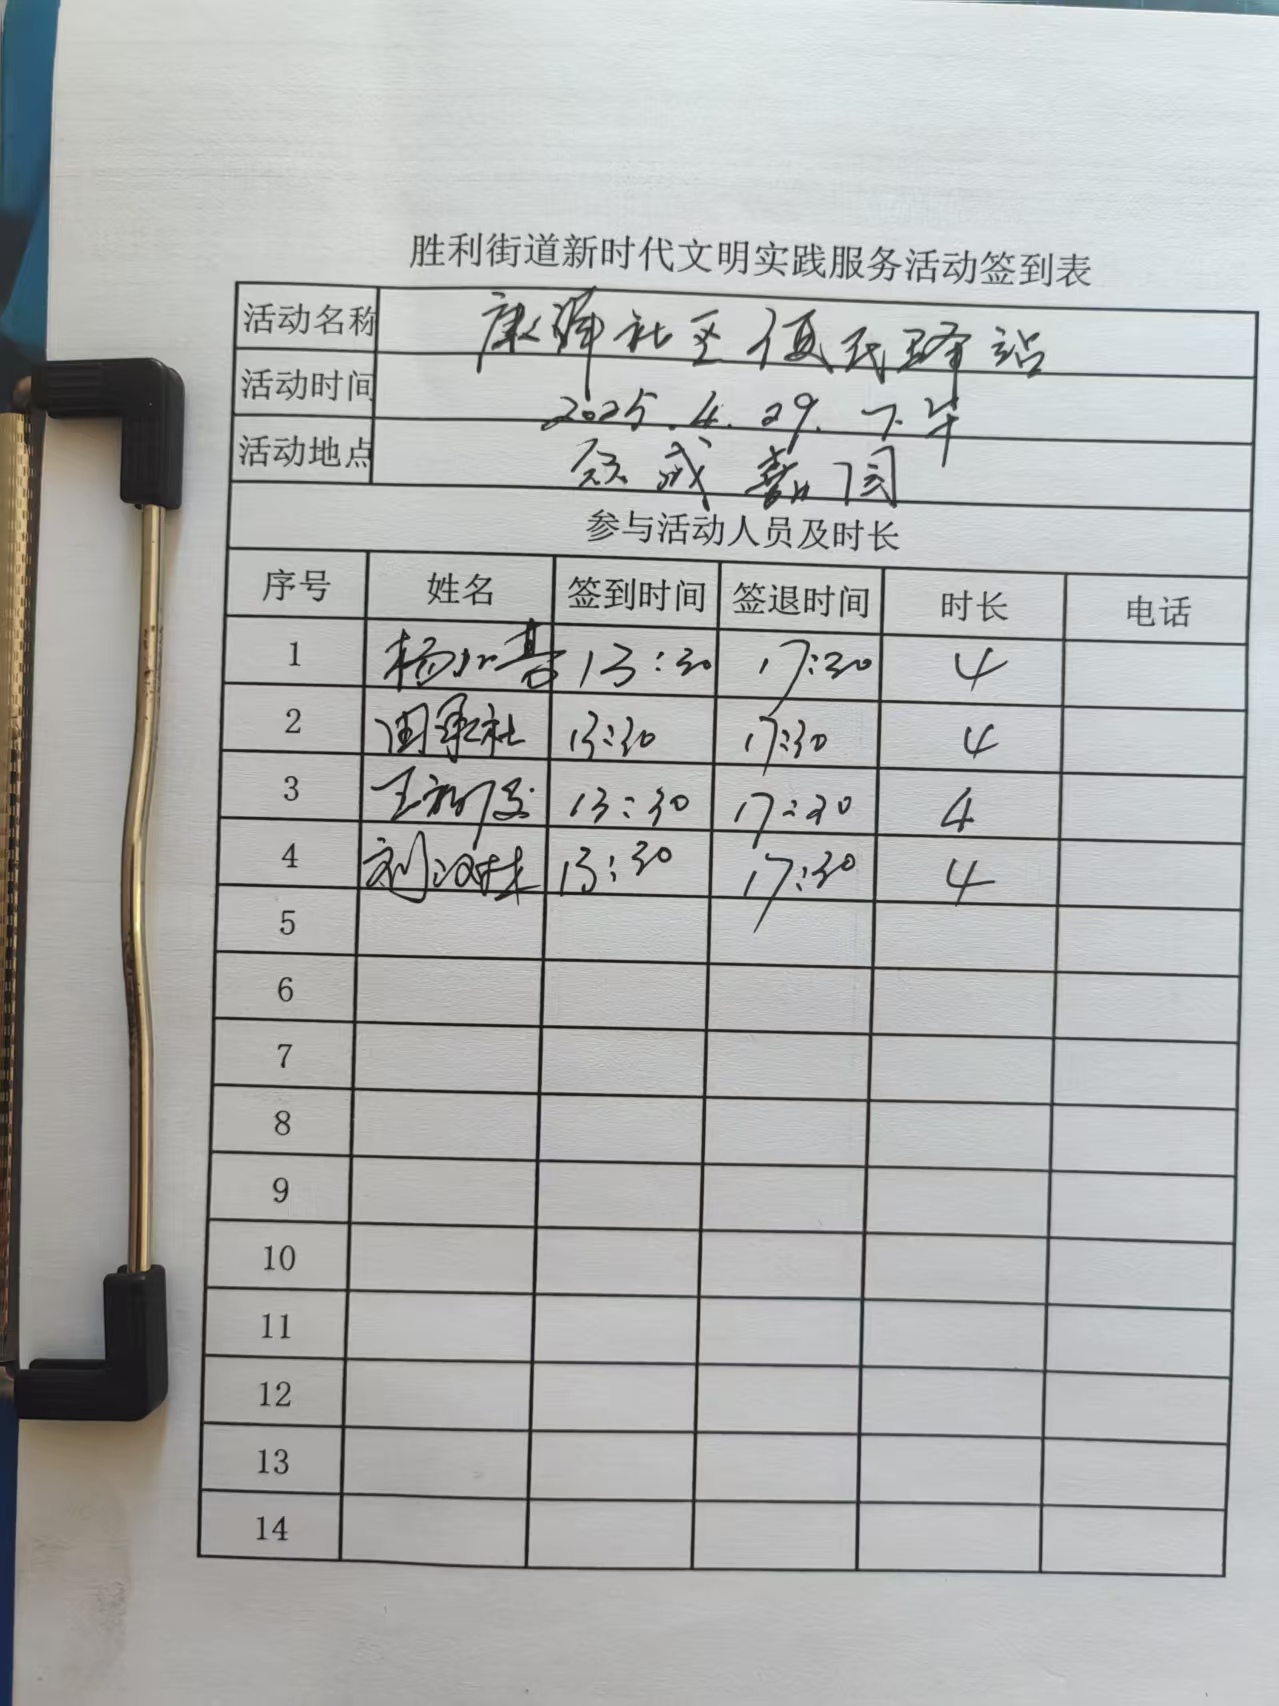 胜利街道新时代文明实践服务活动签到表
活动名称 康辉社区便民驿站
活动时间 2025.4.29.下午
活动地点
参与活动人员及时长
序号 姓名 签到时间 签退时间 时长 电话
1 13:30 17:30 4
2 13:30 17:30 4
3 王 13:30 17:30 4
4 刘汉林 13:30 17:30 4
5
6
7
8
9
10
11
12
13
14